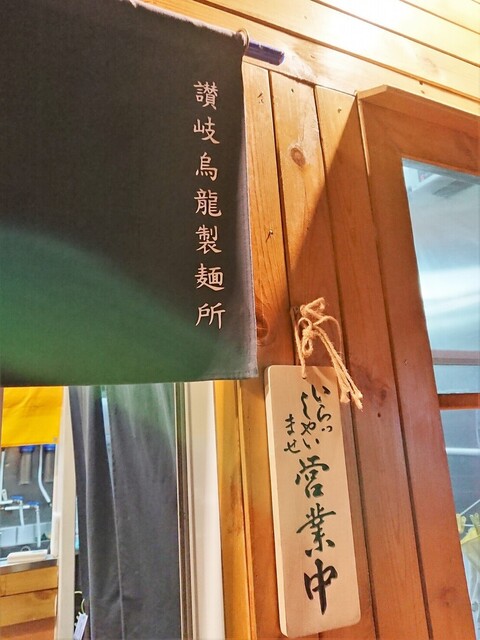 讃岐烏龍製麺所
いらっ
しゃい
ませ
営業中